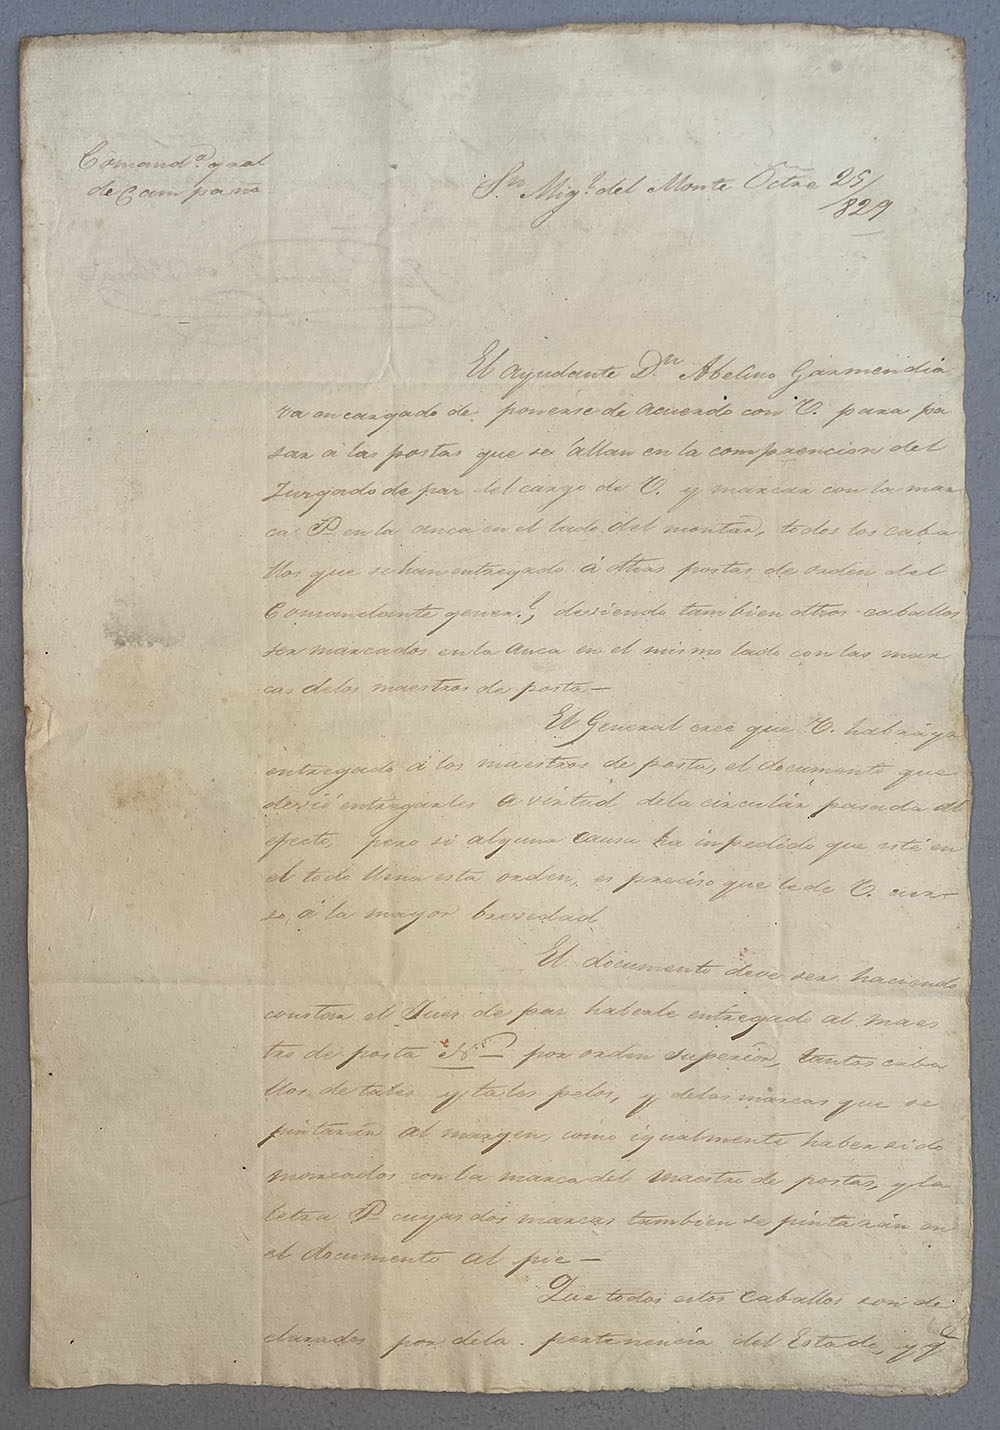 Comand.ª gral
de Campaña
S.n Mig.l del Monte Octre 25/
829
El Ayudante D.n Abelino Garmendia
va encargado de ponerse de acuerdo con V. para pa
sar á las postas que se allan en la comprencion del
Jurgado de par del cargo de V. y marcar con la mar
ca P en la anca en el lado del montar, todos los caba
llos que se han entregado á dhas postas de orden del
Comandante gener.l, deviendo tambien dhos caballos
ser marcados en la anca en el mismo lado con las mar
cas delos maestros de posta—
El General cree que V. habrá ya
entregado á los maestros de posta, el documento que
devió entregarles a virtud dela circulár pasada al
efecto, pero si alguna causa ha impedido que esté en
el todo llena esta orden, es preciso que le de V. cur-
so, á la mayor brevedad
El documento deve ser haciendo
constar el Juez de par haberle entregado al maes
tro de posta N— por orden superior, tantos caba
llos de tales y tales pelos, y delas marcas que se
pintarán al margen, como igualmente haber sido
marcados con la marca del maestro de postas, y la
letra P cuyas dos marcas tambien se pintarán en
el documento al pie—
Que todos estos caballos son de
clarados por dela pertenencia del Estado, y q.e